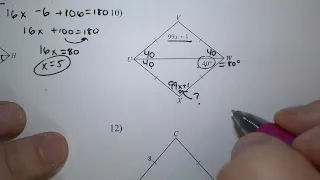 16x - 6 + 106 = 180
10)
16x + 100 = 180
16x = 80
x = 5
H
V
99x + 1
40
40
U
W
40
40°
= 80°
99x+1
?
X
12)
C
8